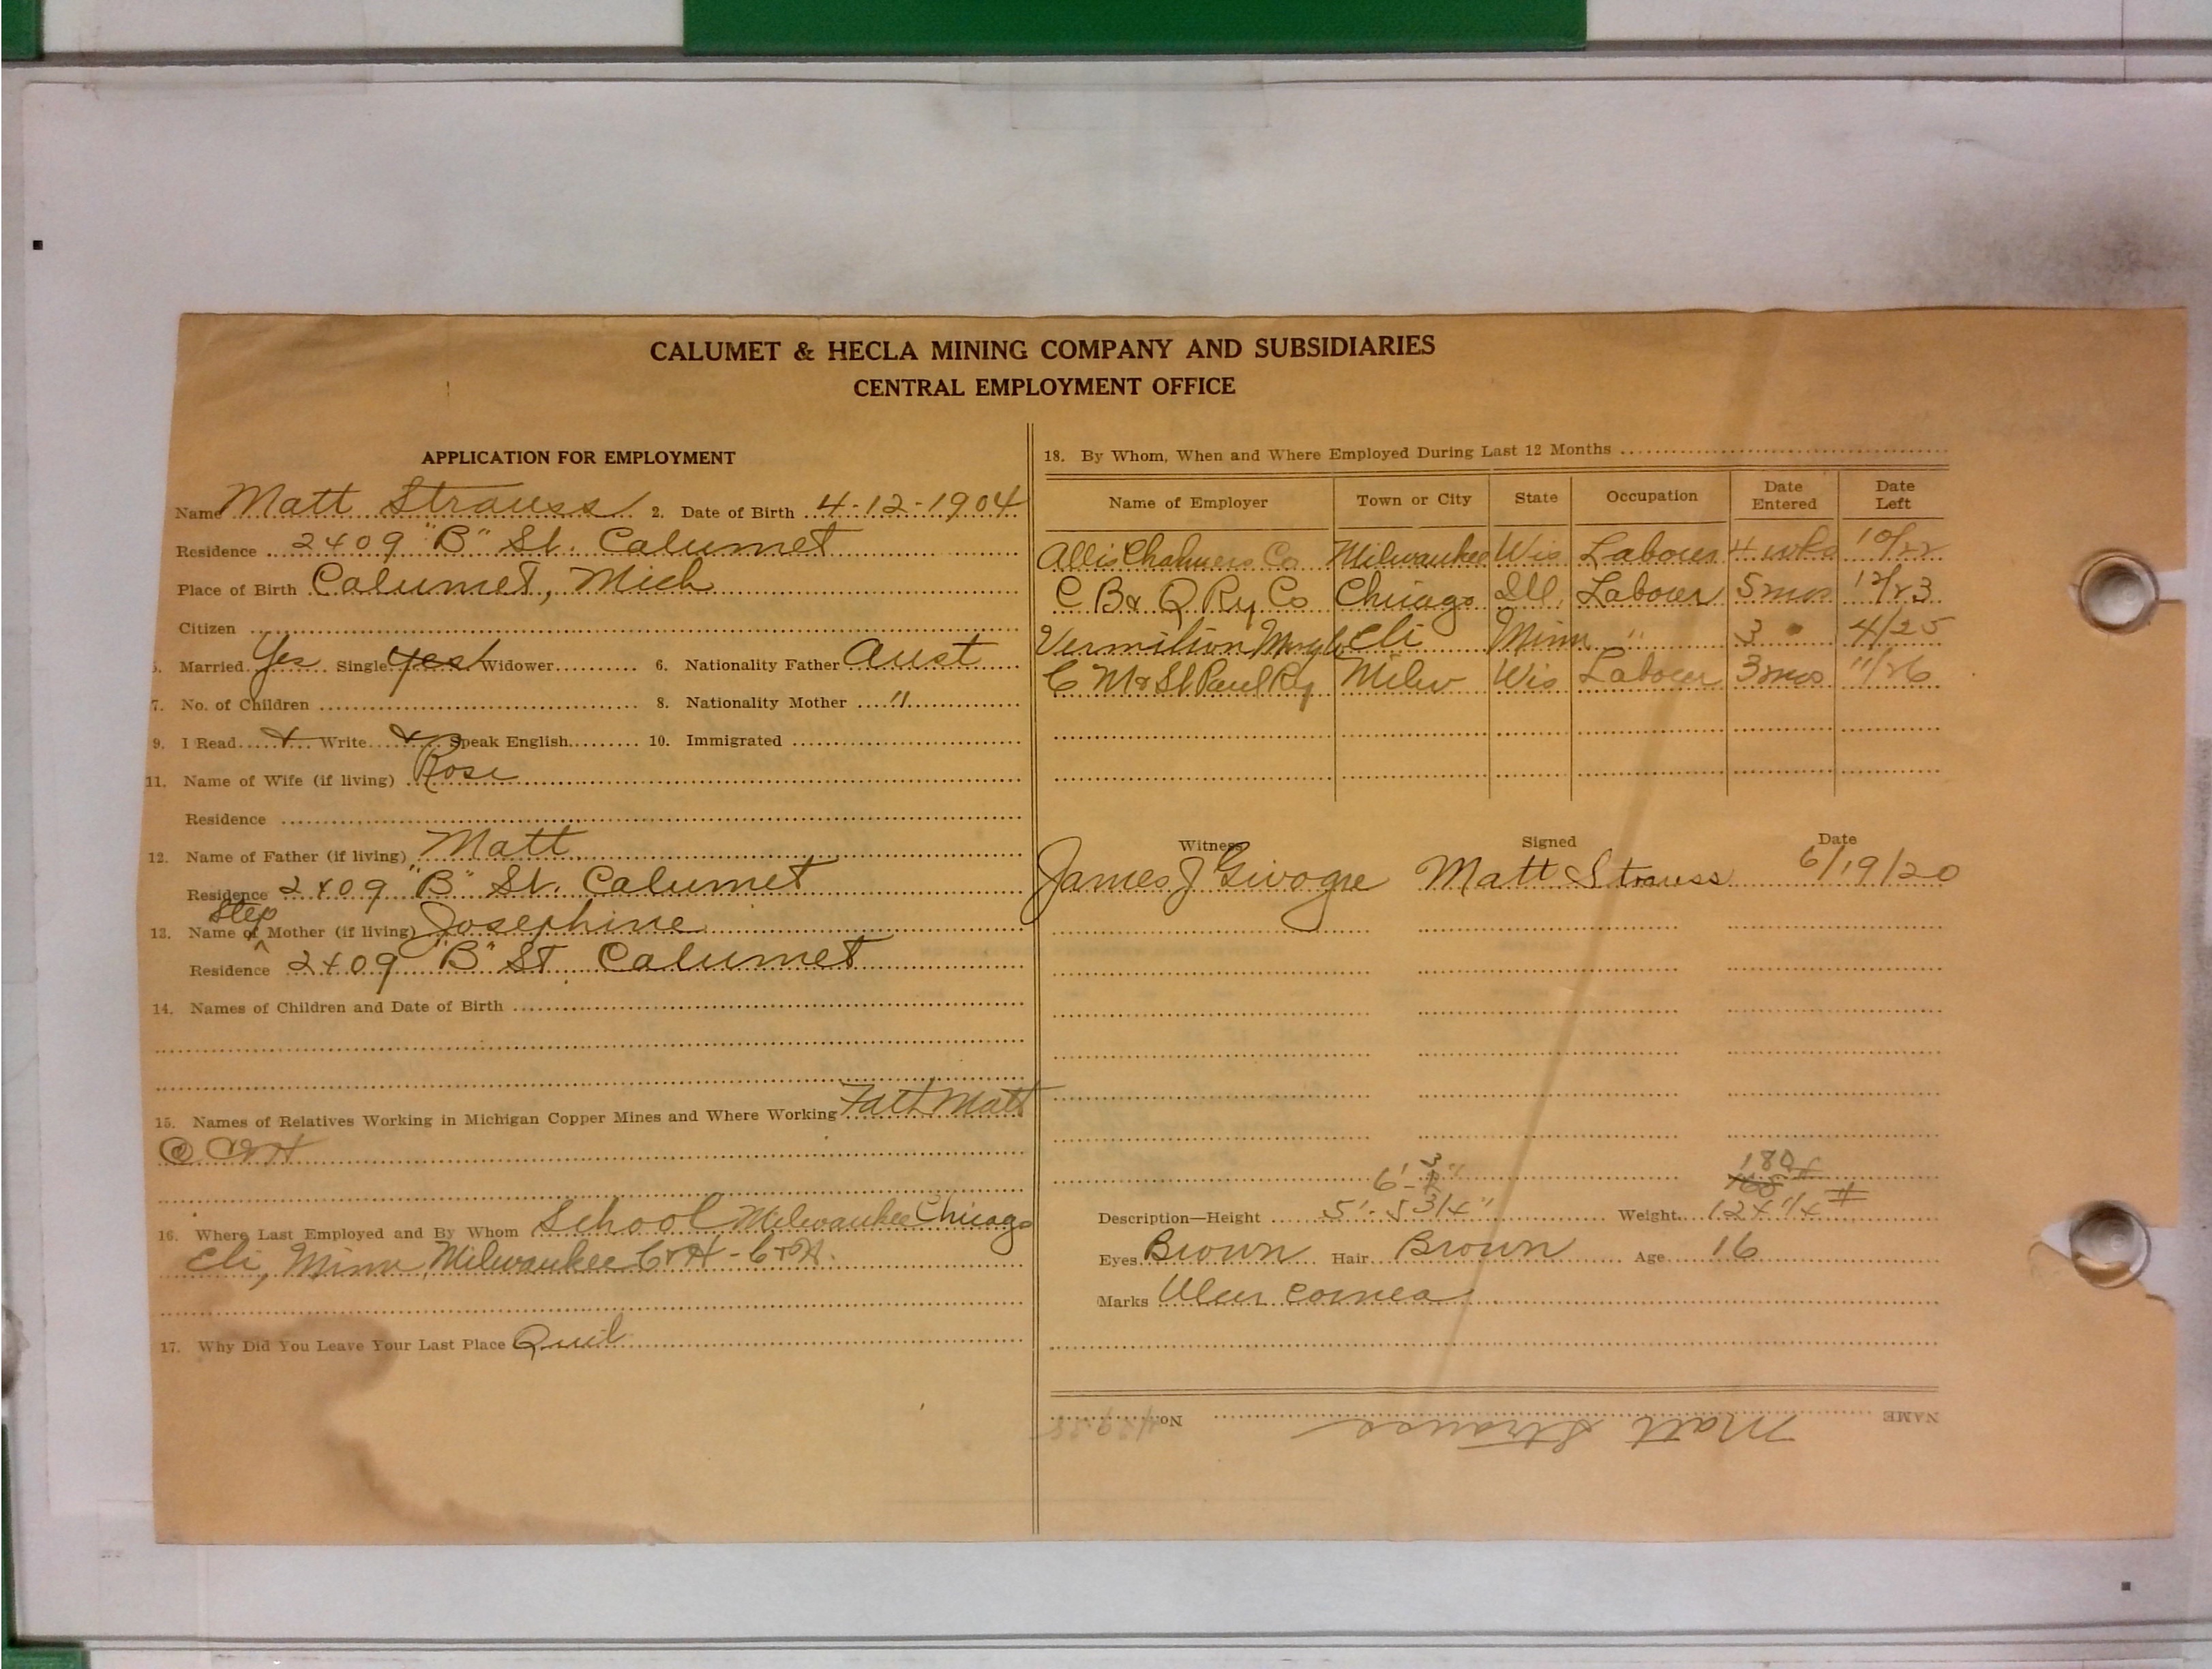 CALUMET & HECLA MINING COMPANY AND SUBSIDIARIES
CENTRAL EMPLOYMENT OFFICE
APPLICATION FOR EMPLOYMENT
Name Matt Strauss 2. Date of Birth 4-12-1904
Residence 2409 "B" St. Calumet
Place of Birth Calumet, Mich
Citizen
5. Married Yes Single yes Widower 6. Nationality Father Aust
7. No. of Children 8. Nationality Mother "
9. I Read & Write & Speak English 10. Immigrated
11. Name of Wife (if living) Rose
Residence
12. Name of Father (if living) Matt
Residence 2409 "B" St. Calumet
Step
13. Name of ^ Mother (if living) Josephine
Residence 2409 "B" St. Calumet
14. Names of Children and Date of Birth
15. Names of Relatives Working in Michigan Copper Mines and Where Working Fath Matt
@ C&H
16. Where Last Employed and By Whom School Milwaukee Chicago
Eli, Minn, Milwaukee C&H - C&H.
17. Why Did You Leave Your Last Place Quit
18. By Whom, When and Where Employed During Last 12 Months
Name of Employer Town or City State Occupation Date Entered Date Left
Allis Chalmers Co Milwaukee Wis Labourer 4 wks 10/22
C B & Q Ry Co Chicago Ill. Labourer 5 mos 12/23
Vermilion Eli Minn " 3 " 4/25
C M & St Paul Ry Milw Wis Labourer 3 mos 11/26
Witness Signed Date
James J Matt Strauss 6/19/20
6'- 3" 180#
165
Description—Height 5'-5 3/4" Weight 124 1/4 #
Eyes Brown Hair Brown Age 16
Marks Ulcer cornea
NAME Matt Strauss No.